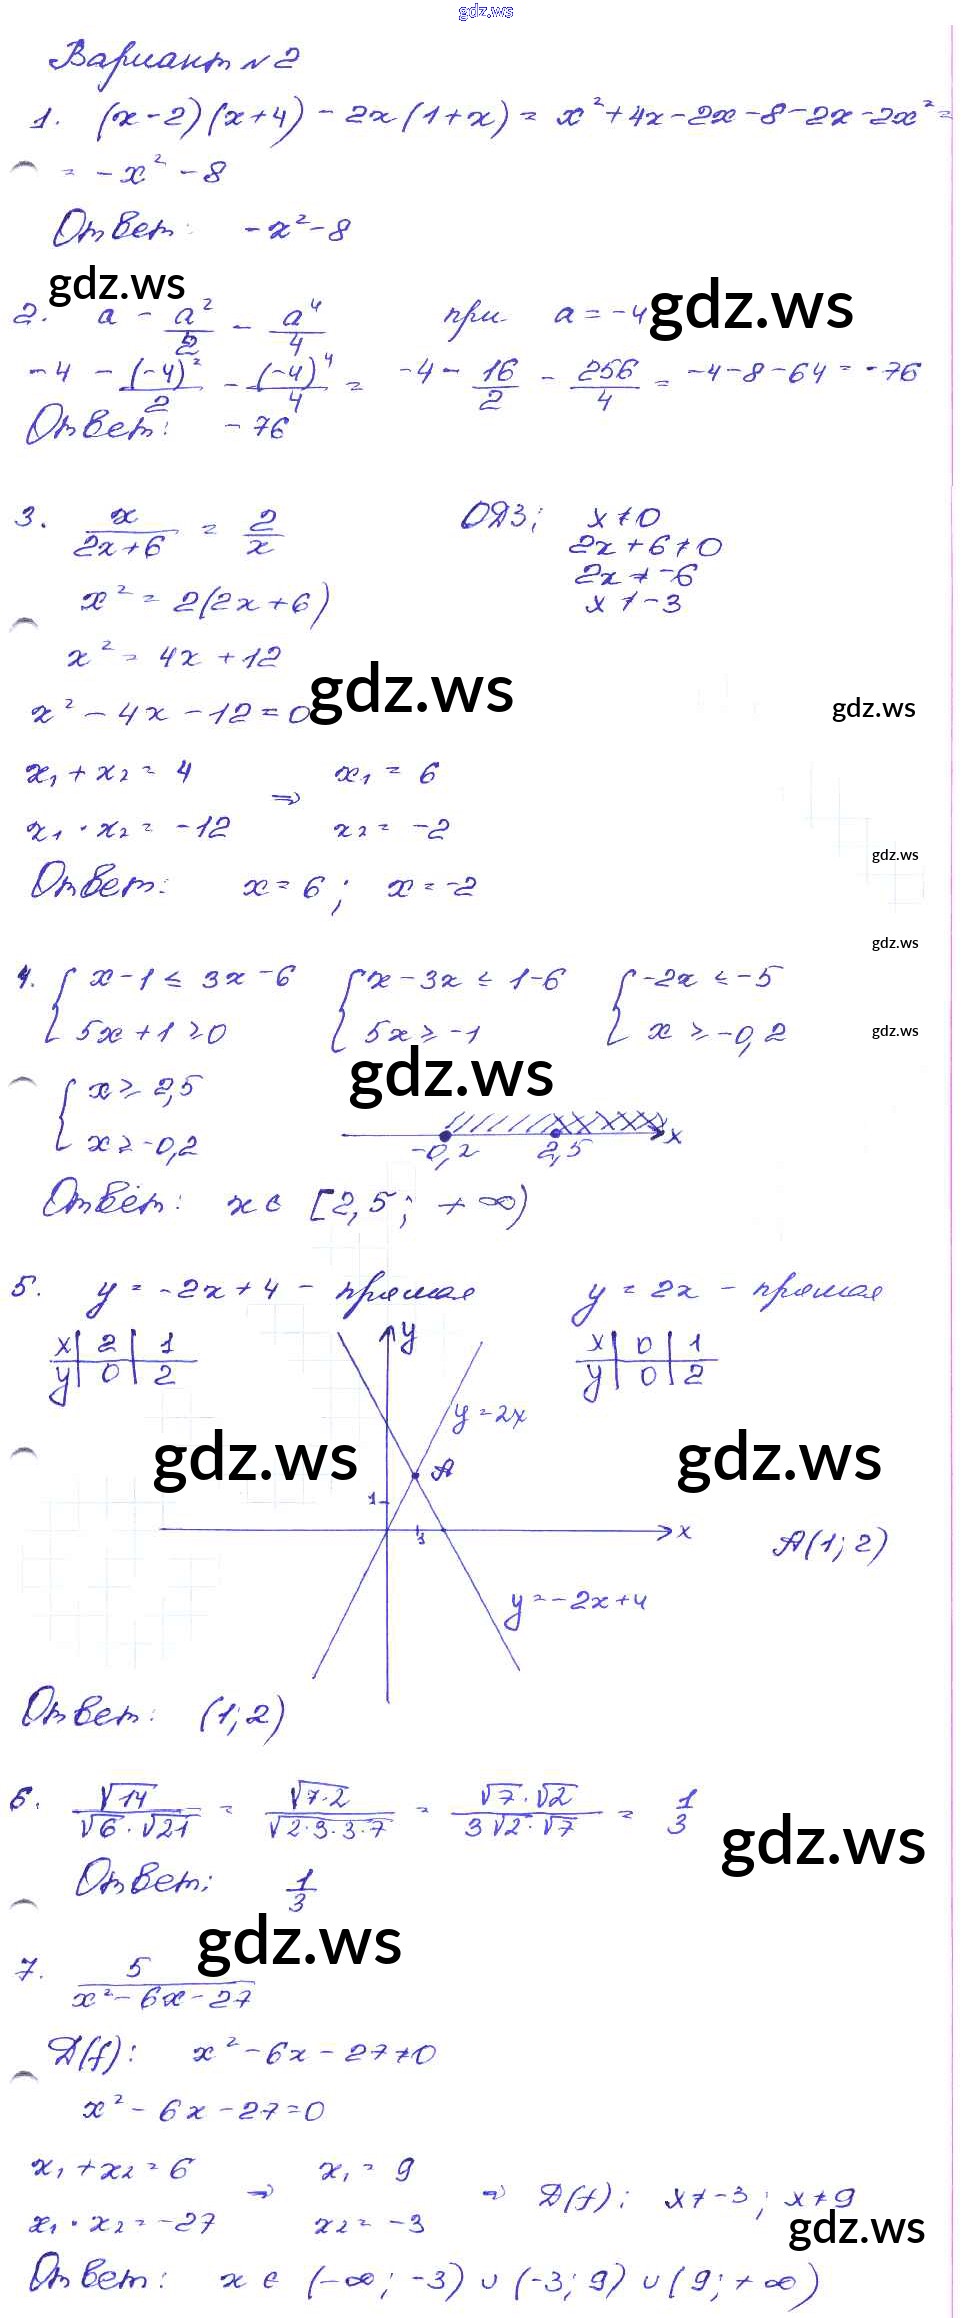 gdz.ws
Вариант №2
1. (x-2)(x+4) - 2x(1+x) = x²+4x-2x-8-2x-2x² =
= -x² - 8
Ответ: -x²-8
gdz.ws
2. a - a²/2 - a⁴/4 при a = -4 gdz.ws
-4 - (-4)²/2 - (-4)⁴/4 = -4 - 16/2 - 256/4 = -4-8-64 = -76
Ответ: -76
3. x/(2x+6) = 2/x ОДЗ: x≠0
2x+6≠0
2x≠-6
x² = 2(2x+6) x≠-3
x² = 4x+12
gdz.ws
x² - 4x - 12 = 0 gdz.ws
x₁ + x₂ = 4 ⇒ x₁ = 6
x₁ · x₂ = -12 x₂ = -2
gdz.ws
Ответ: x = 6; x = -2
gdz.ws
4. { x-1 ≤ 3x-6 { x-3x ≤ 1-6 { -2x ≤ -5
5x+1 ≥ 0 5x ≥ -1 x ≥ -0,2
gdz.ws
gdz.ws
{ x ≥ 2,5
x ≥ -0,2
-0,2 2,5 x
Ответ: x ∈ [2,5; +∞)
5. y = -2x+4 - прямая y = 2x - прямая
x 2 1 y x 0 1
y 0 2 y 0 2
y=2x
gdz.ws A gdz.ws
1
x
1
A(1;2)
y=-2x+4
Ответ: (1;2)
6. √14/(√6·√21) = √(7·2)/√(2·3·3·7) = (√7·√2)/(3√2·√7) = 1/3
gdz.ws
Ответ: 1/3
gdz.ws
7. 5/(x²-6x-27)
D(f): x²-6x-27≠0
x²-6x-27=0
x₁+x₂ = 6 ⇒ x₁ = 9 ⇒ D(f): x≠-3; x≠9
x₁·x₂ = -27 x₂ = -3
gdz.ws
Ответ: x ∈ (-∞; -3) ∪ (-3; 9) ∪ (9; +∞)